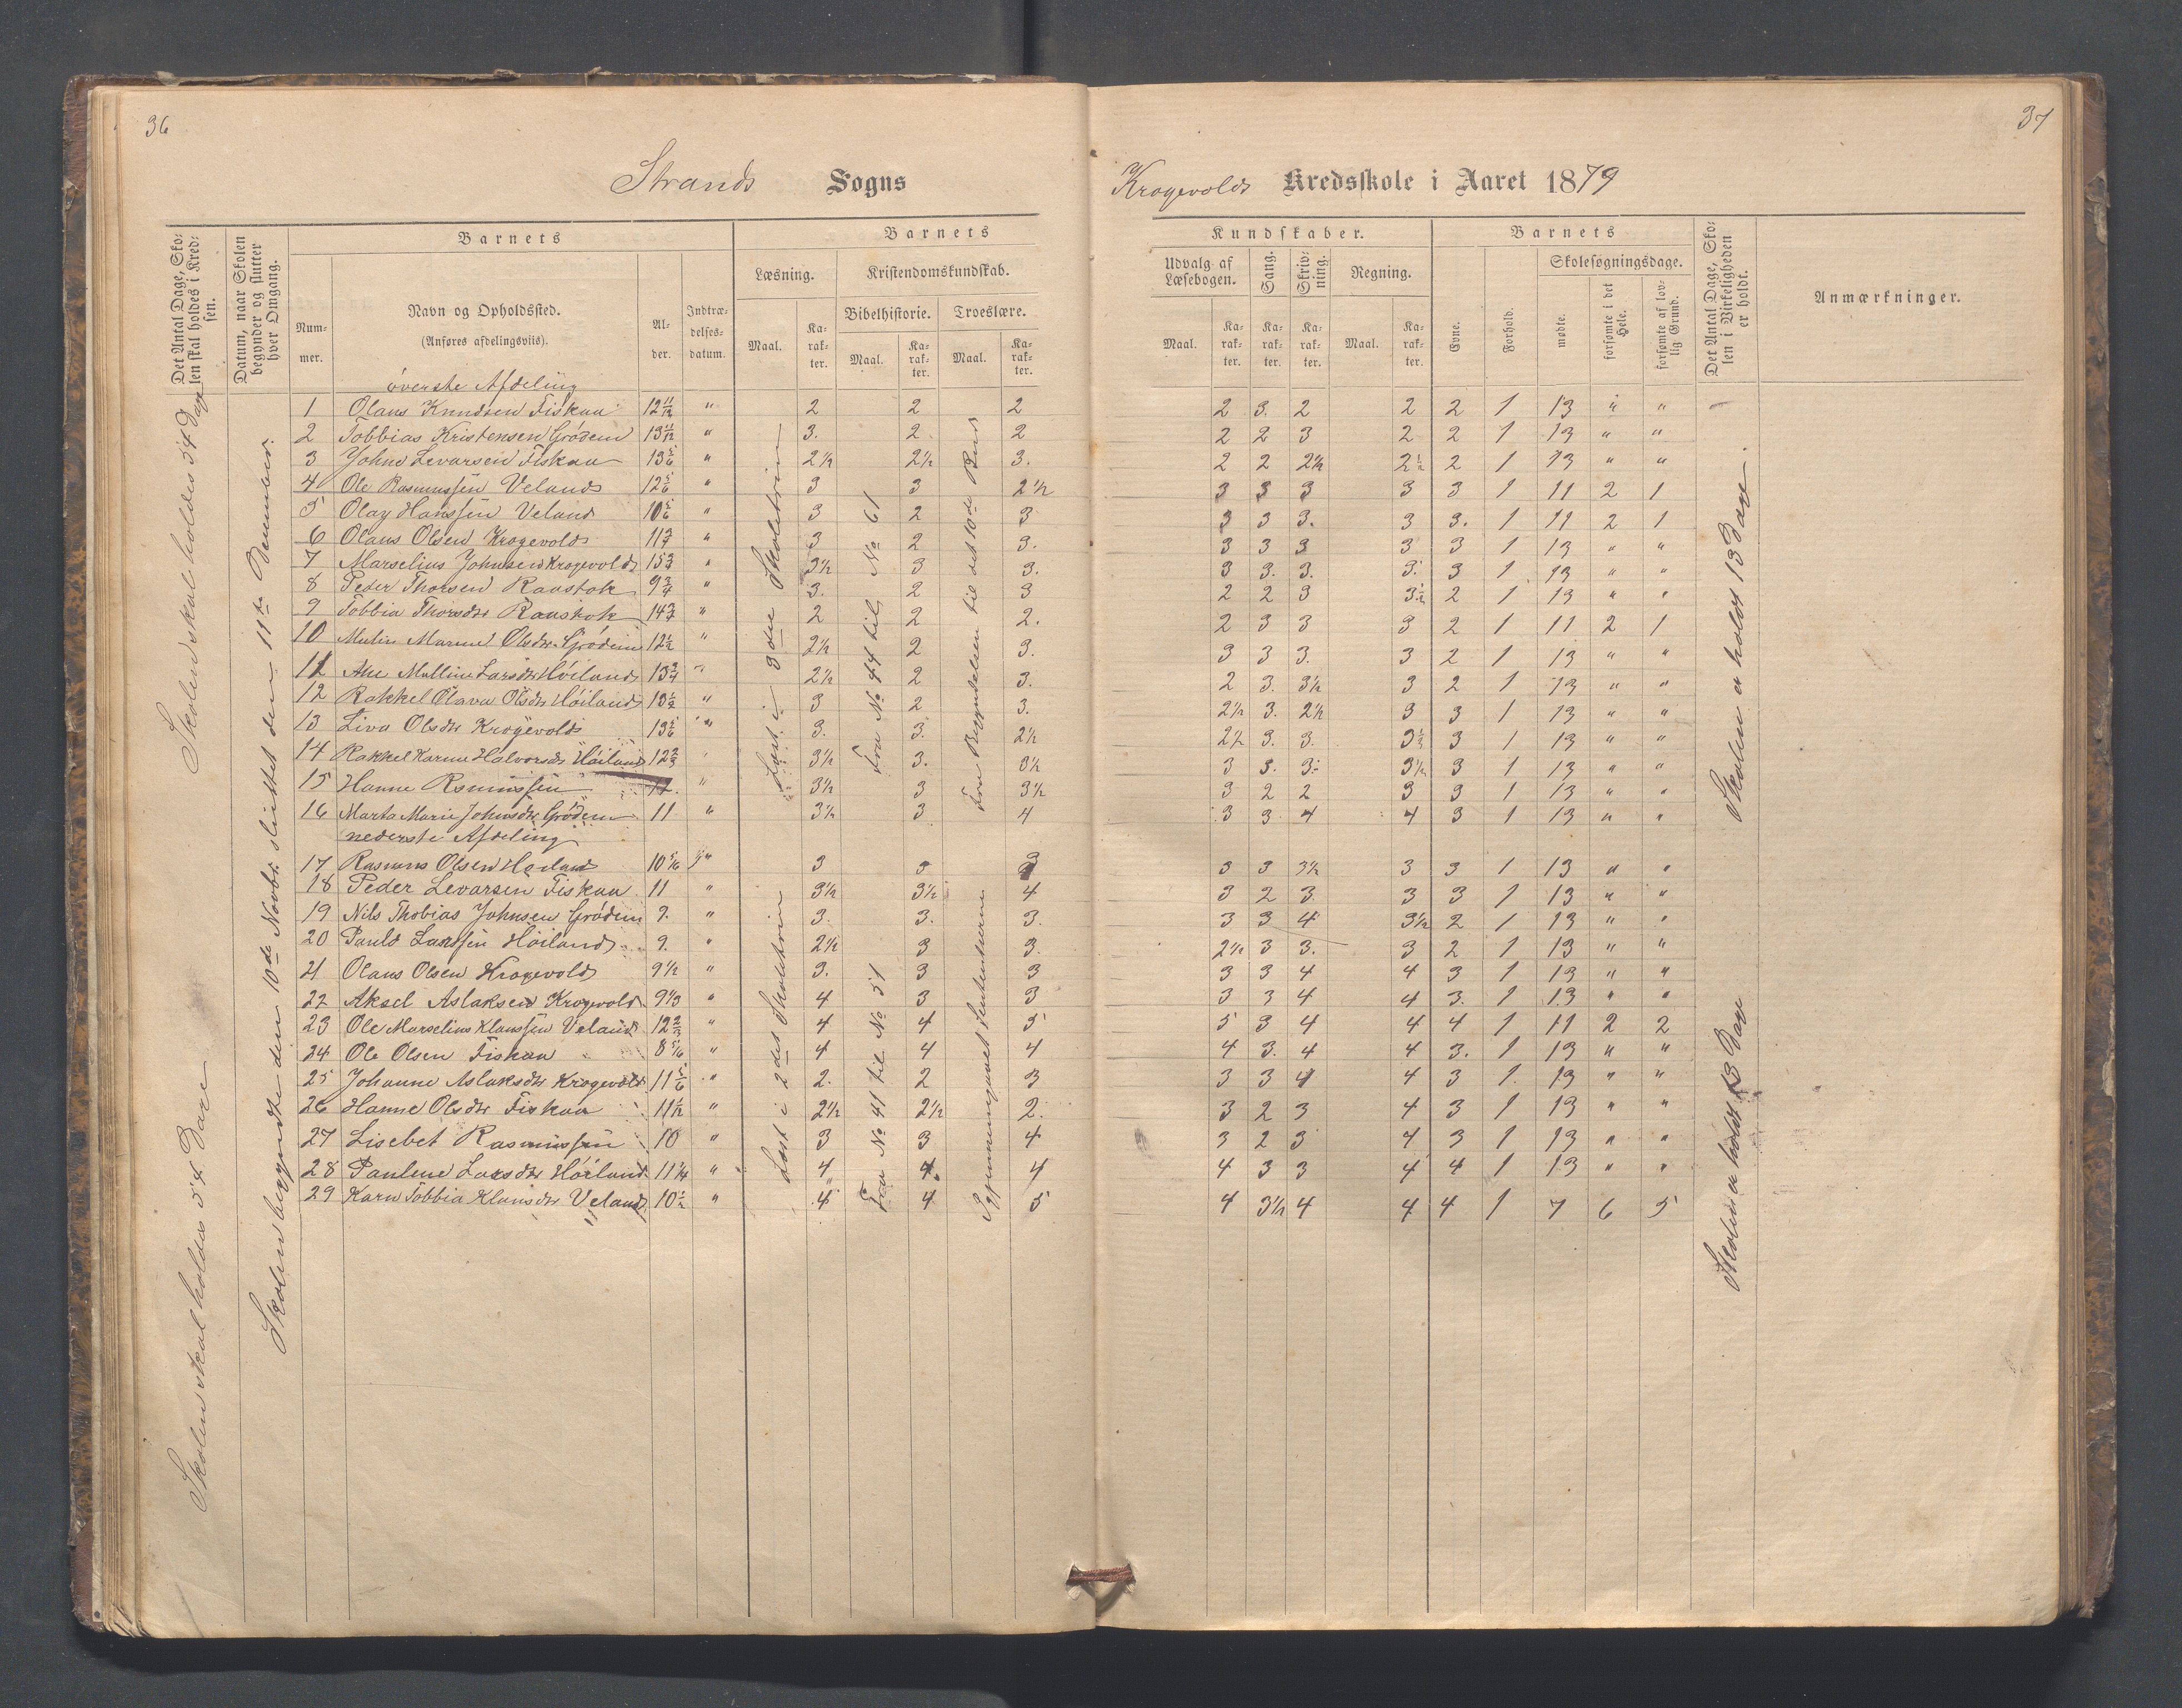 36
37
Strands Sogns
Krogevolds Kredsskole i Aaret 1879
Det Antal Dage, Skolen skal holdes i Kredsen.
Datum, naar Skolen begynder og slutter hver Omgang.
Barnets
Nummer.
Navn og Opholdssted.
(Anføres afdelingsviis).
Alder.
Indtrædelsesdatum.
Barnets
Læsning.
Kristendomskundskab.
Bibelhistorie. Troeslære.
Maal. Karakter. Maal. Karakter. Maal. Karakter.
Kundskaber.
Udvalg af Læsebogen. Sang. Skrivning. Regning.
Maal. Karakter. Karakter. Karakter. Maal. Karakter.
Barnets
Evne. Forhold.
Skolesøgningsdage.
mødte. forsømte i det Hele. forsømte af lovlig Grund.
Det Antal Dage, Skolen i Virkeligheden er holdt.
Anmærkninger.
Skolen skal holdes 54 Dage
Skolen skal holdes 54 Dage
Skolen begyndte den 10de Novbr. sluttet den 11te December.
Læst i 3die Skoletrin
Fra No 44 til No 61
Fra Begyndelsen til det 10de Bud
Læst i 2det Skoletrin
Fra No 41 til No 51
Skolen er holdt 13 Dage.
Skolen er holdt 13 Dage
øverste Afdeling
1 Olaus Knudsen Fiskaa 12 11/12 " 2 2 2 2 3. 2 2 2 1 13 " "
2 Tobbias Kristensen Grödem 13 11/12 " 3. 2 2 2 2 3 2 2 1 13 " "
3 Johns Levarsen Fiskaa 13 5/6 " 2½ 2½ 3. 2 2 2½ 2½ 2 1 13 " "
4 Ole Rasmussen Veland 12 5/6 " 3 3 2½ 3 3 3 3 3 1 11 2 1
5 Olay Hanssen Veland 10 5/6 " 3 2 3 3 3 3. 3 3. 1 11 2 1
6 Olaus Olsen Krogevold 11 3/4 " 3 2 3. 3 3 3 3 3 1 13 " "
7 Marselius Johnsen Krogevold 13 3/4 " 3½ 3 3. 3 3. 3. 3. 3 1 13 " "
8 Peder Thorsen Raustok 9 3/4 " 3. 2 3 2 2 3 3½ 2 1 13 " "
9 Tobbia Thorsdtr Raustok 14 3/4 " 2 2 2. 2 3 3 3 2 1 11 2 1
10 Malin Marine Olsdtr Grödem 12½ " 2½ 2 3. 3 3 3. 3 2 1 13 " "
11 Ane Malline Larsdtr Höiland 13 3/4 " 2½ 2 3. 2 3. 3½ 3 2 1 13 " "
12 Rakkel Olava Olsdtr Höiland 13½ " 3 2 3. 2½ 3. 2½ 3 3 1 13 " "
13 Liva Olsdtr Krogevold 13 5/6 " 3. 3. 2½ 2½ 3. 3. 3½ 3 1 13 " "
14 Rakkel Karine Halvorsdtr Höiland 12 2/3 3½ 3. 3½ 3 3. 3. 3½ 3 1 13 " "
15 Hanne Rsmussen 12. " 3½ 3 3½ 3 2 2 3 3 1 13 " "
16 Marta Marie Johnsdtr Grödem 11 " 3½ 3 4 3 3 4 4 3 1 13 " "
nederste Afdeling
17 Rasmus Olsen Höiland 10 5/6 " 3 3 3 3 3 3½ 3 3 1 13 " "
18 Peder Levarsen Fiskaa 11 " 3½ 3½ 4 3 2 3 3 3 1 13 " "
19 Nils Thobias Johnsen Grödem 9. " 3. 3. 3. 3 3 4 3½ 2 1 13 " "
20 Pauld Larssen Höiland 9. " 2½ 3 3. 2½ 3 3. 3 2 1 13 " "
21 Olaus Olsen Krogevold 9½ " 3. 3 3 3 3 4 4 3 1 13 " "
22 Aksel Aslaksen Krogevold 9⅓ " 4 3 3 3 3 4 4 3. 1 13 " "
23 Ole Marselius Klaussen Veland 12 2/3 " 4 4 5 5 3 4 4 4 1 11 2 2
24 Ole Olsen Fiskaa 8 5/6 " 4 4 4 4 3. 4 4 3. 1 13 " "
25 Johanne Aslaksdtr Krogevold 11 5/6 " 2. 2 3 3 3 4 4 3 1. 13 " "
26 Hanne Olsdtr Fiskaa 11½ " 2½ 2½ 2. 3 2 3 4 3 1 13 " "
27 Lisebet Rasmussen 10 " 3 3 4 3 2 3 4 3 1 13 " "
28 Pauline Larsdtr Höiland 11¼ " 4 4. 4 4 3 3 4 4 1 13 " "
29 Karn Tobbia Klausdtr Veland 10½ " 4 4 5 4 3½ 4 4 4 1 7 6 5